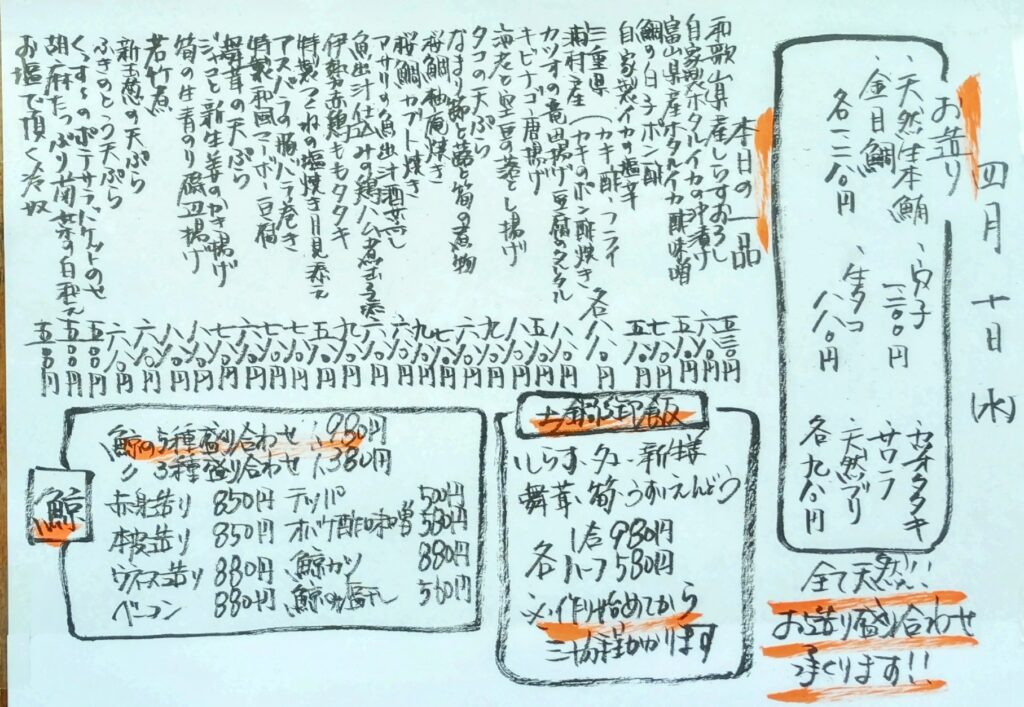 四月十日(水)
お造り
・天然生本鮪
・金目鯛
各一二八〇円
・穴子
一三〇〇円
・生タコ
八八〇円
・カツオタタキ
・サワラ
・天然ブリ
各九八〇円
全て天然!!
お造り盛り合わせ
承ります!!
本日の一品
和歌山県産しらすおろし 五三〇円
自家製ホタルイカの沖漬け 六八〇円
富山県産ホタルイカ酢味噌 五八〇円
鯛の白子ポン酢 七八〇円
自家製イカの塩辛 五八〇円
三重県 (カキ酢、フライ
浦村産 (カキのポン酢焼き 各八八〇円
カツオの竜田揚げ豆腐のタルタル 八八〇円
キビナゴ唐揚げ 五八〇円
海老と空豆の落とし揚げ 八八〇円
タコの天ぷら 九八〇円
なまり節と蕗と筍の煮物 六八〇円
桜鯛柚庵焼き 七八〇円
桜鯛カブト焼き 九八〇円
アサリの魚出汁酒蒸し 六八〇円
魚出汁仕込みの鶏ハム煮玉子添え 六八〇円
伊勢赤鶏ももタタキ 九八〇円
特製つくねの塩焼き月見添え 五八〇円
アスパラの豚バラ巻き 七八〇円
特製和風マーボー豆腐 七八〇円
舞茸の天ぷら 七八〇円
ジャコと新生姜のかき揚げ 八八〇円
筍の生青のり磯辺揚げ 八八〇円
若竹煮 八八〇円
新玉葱の天ぷら 六八〇円
ふきのとう天ぷら 六八〇円
くっすーのポテサラ、バケットのせ 五五〇円
胡麻たっぷり菊菜の白和え 五五〇円
お塩で頂く冷奴 五五〇円
土鍋御飯
・しらす・タコ・新生姜
舞茸・筍・うすいえんどう
1合 980円
各 ハーフ 580円
※作り始めてから
三十分程かかります
鯨
鯨の5種盛り合わせ 1,980円
〃 3種盛り合わせ 1,380円
赤身造り 850円
本皮造り 850円
ウネス造り 880円
ベーコン 880円
テッパ 500円
オバケ酢味噌 580円
鯨カツ 880円
鯨の塩干し 580円